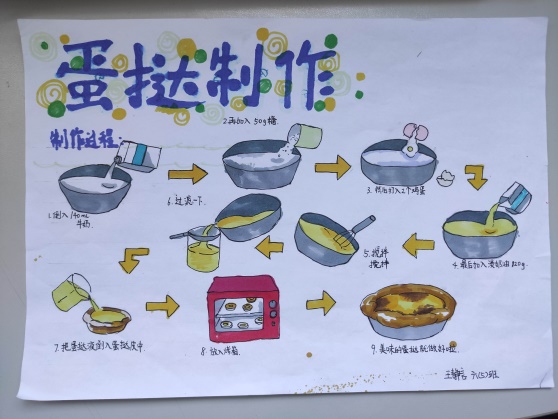 蛋挞制作
制作过程:
1.倒入140ml
牛奶.
2.再加入50g糖.
3.然后打入2个鸡蛋
4.最后加入淡奶油120g.
5.搅拌
搅拌
6.过滤一下.
7.把蛋挞液倒入蛋挞皮中.
8.放入烤箱.
9.美味的蛋挞就做好啦.
王静言 六(5)班